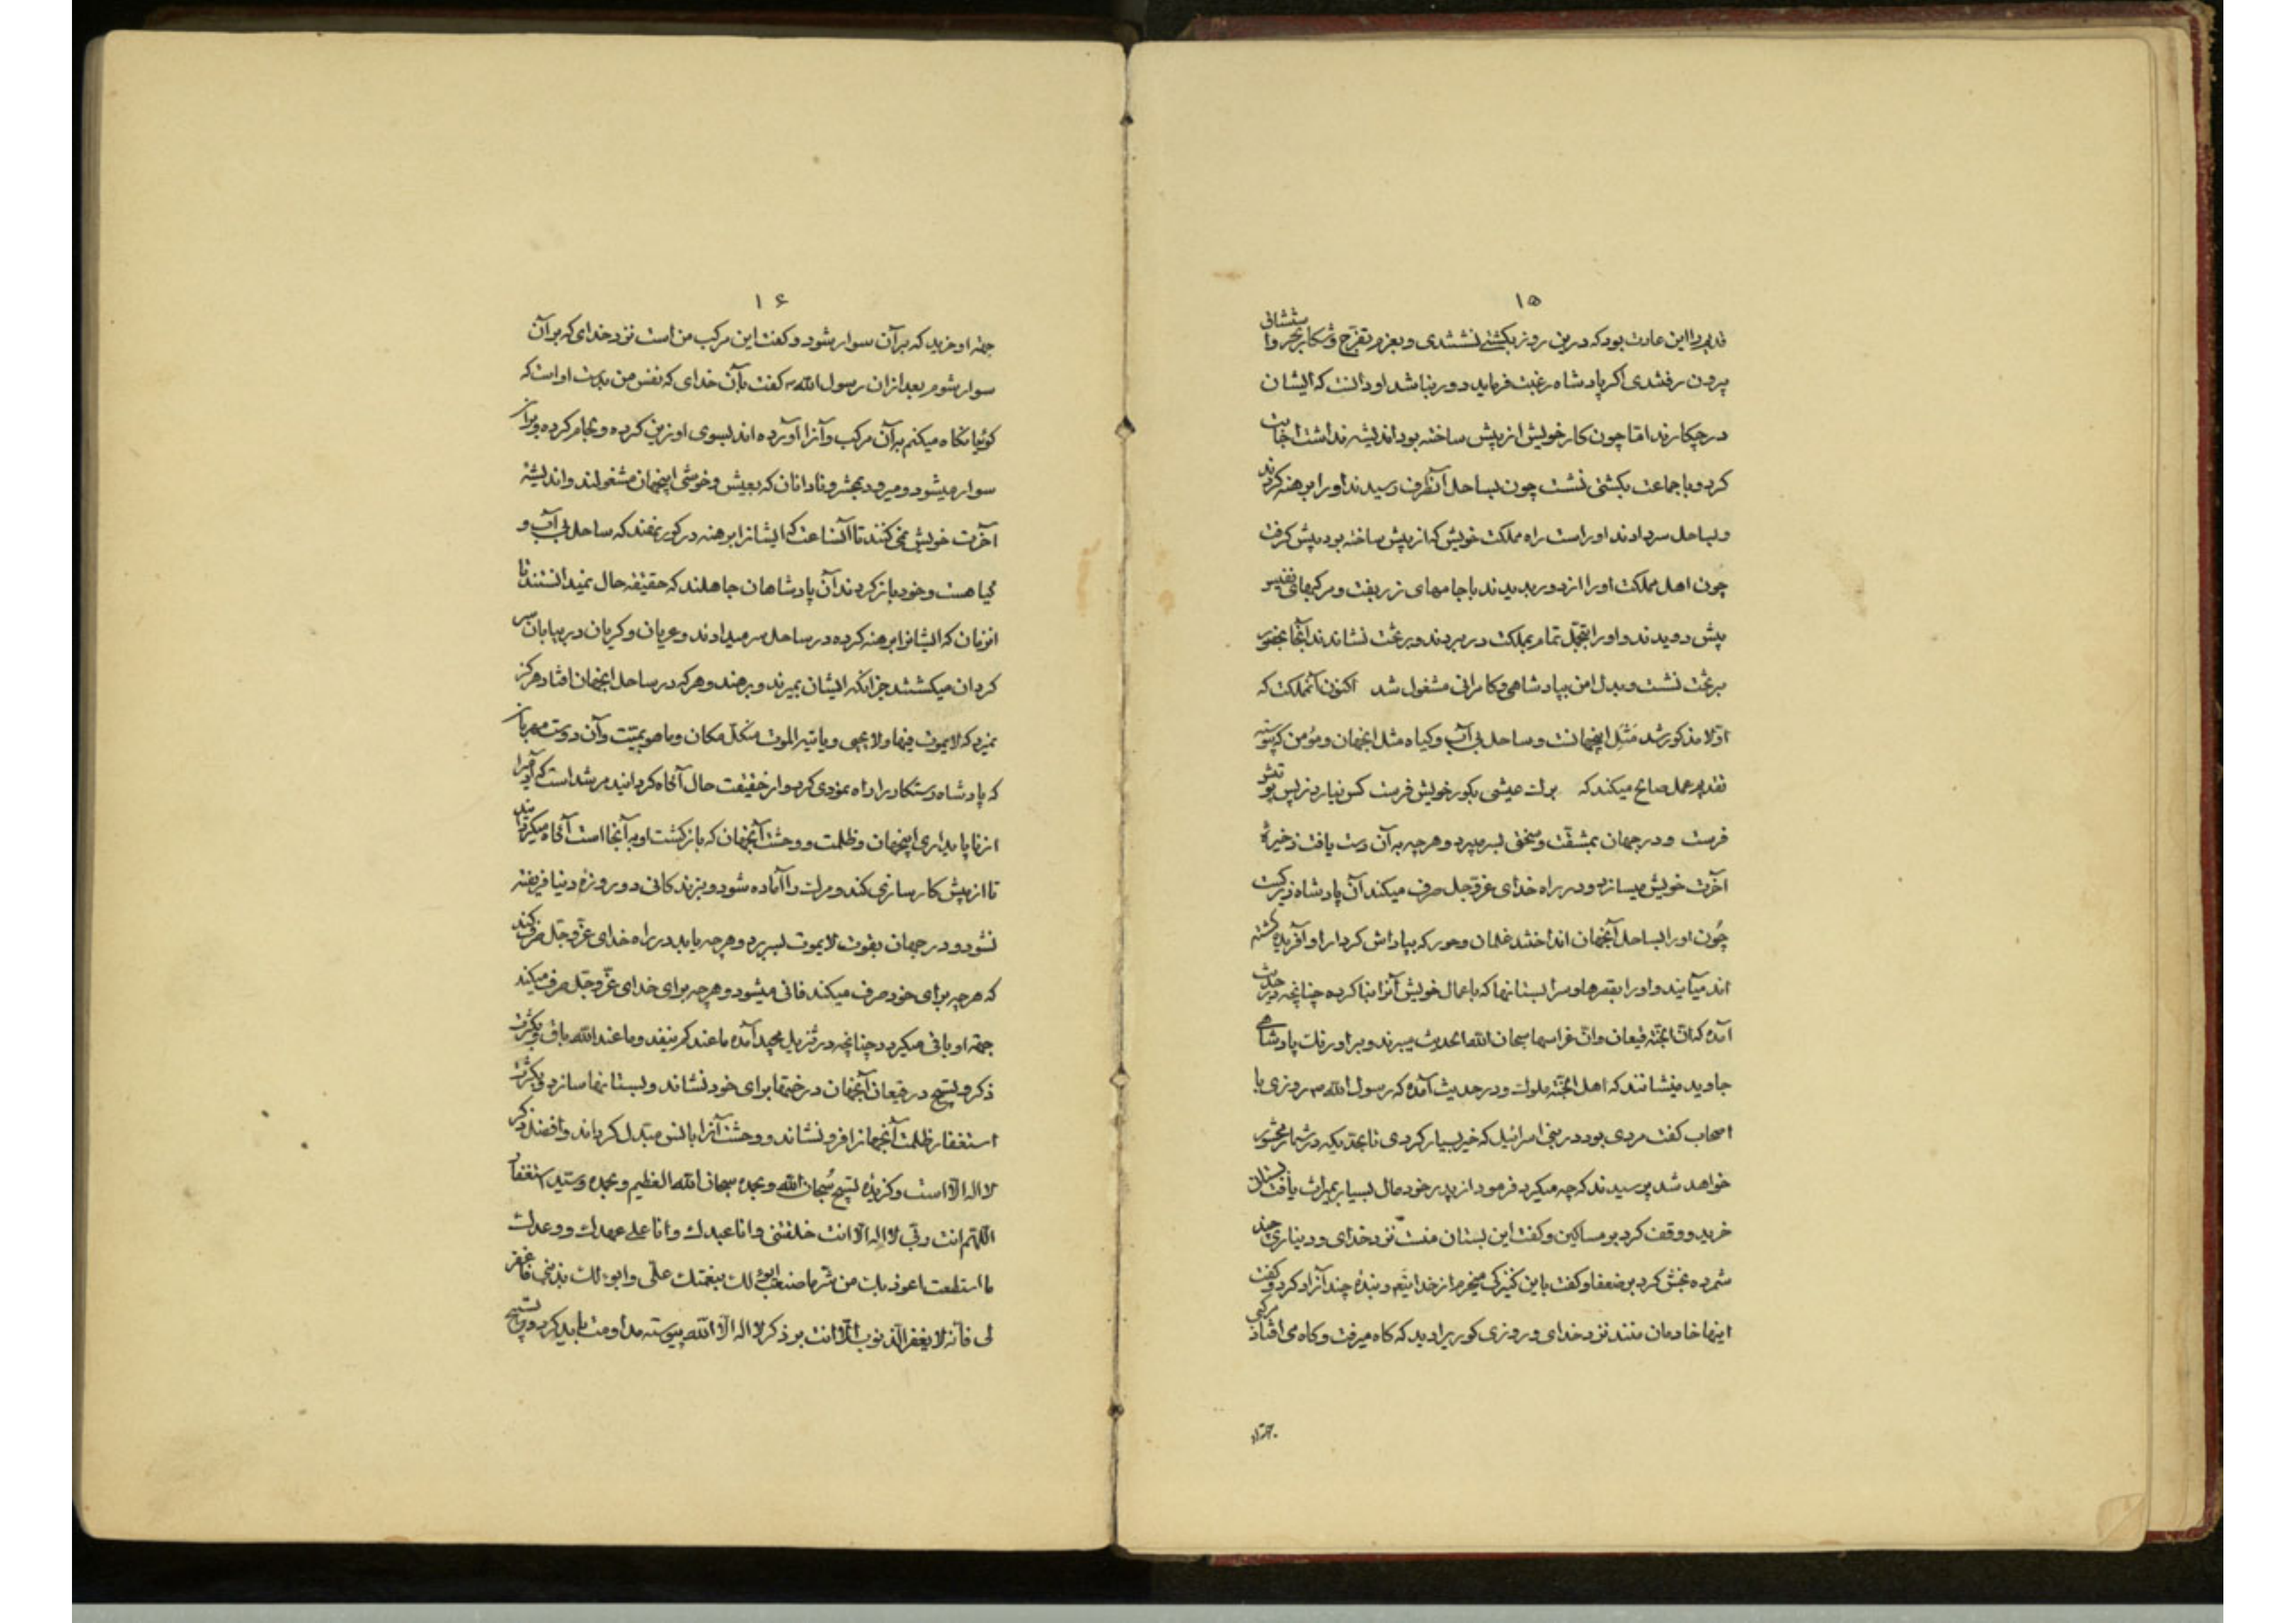 ۱۵
قدیم را این عادت بود که درین روز بکشتی نشستندی و بعزم تفرج و شکار بحر وا
بیرون رفتندی اکر پادشاه رغبت فرماید دور نباشد او دانست که ایشان
در چکارند اما چون کار خویش از پیش ساخته بود اندیشه نداشت اجابت
کرد و با جماعت بکشتی نشست چون بساحل آنطرف رسیدند او را برهنه کردند
و بساحل سر دادند او راست راه مملکت خویش که از پیش ساخته بود پیش کرفت
چون اهل مملکت او را از دور بدیدند با جامهای زربفت و مرکبهای نفیس
پیش دویدند و او را بتجمل تمام بمملکت در بردند و بر تخت نشاندند آنجا بحضور
بر تخت نشست و بدل امن بپادشاهی و کامرانی مشغول شد اکنون آنمملکت که
اولا مذکور شد مثل اینجهانست و ساحل بی آب و کیاه مثل آنجهان و مؤمن که پیوسته
تقدیم عمل صالح میکند که برك عیشی بکور خویش فرست کس نیارد ز پس تو پیش
فرست و در جهان بمشقت و سختی بسر میبرد و هر چه به آن دست یافت ذخیرهٔ
آخرت خویش میسازد و در راه خدای عز و جل صرف میکند آن پادشاه زیرکست
چون او را بساحل آنجهان انداختند غلمان و حور که بپاداش کردار او آفریده کشته
اند میآیند و او را بقصرها و سرابستانها که باعمال خویش آنرا بنا کرده چنانچه در حدیث
آمده که ان الجنة قیعان وان غراسها سبحان الله الحدیث میبرند و بر اورنك پادشاهی
جاوید مینشانند که اهل الجنة ملوك و در حدیث آمده که رسول الله ص روزی با
اصحاب کفت مردی بود در بنی اسرائیل که خیر بسیار کردی تا بحدیکه در شمار محشور
خواهد شد پرسیدند که چه میکرد فرمود از پدر خود مال بسیار بمیراث یافت بستان
خرید و وقف کرد بر مساکین و کفت این بستان منست نزد خدای و دیناری چند
شمرده بخش کرد بر ضعفا و کفت باین کنیزکی میخرم از خدایتعم و بندهٔ چند آزاد کرد و کفت
اینها خادمان منند نزد خدای و روزی کوریرا دید که کاه میرفت و کاه می افتاد مرکبی
جهة او
۱۶
جهة او خرید که بر آن سوار شود و کفت این مرکب من است نزد خدای که بر آن
سوار شوم بعد از ان رسول الله ص کفت بآن خدای که نفس من بدست اوست که
کوئیا نکاه میکنم بر آن مرکب و آنرا آورده اند بسوی او زین کرده و لجام کرده و بر آن
سوار میشود و میرود بمحشر و نادانان که بعیش و خوشی اینجهان مشغولند و اندیشهٔ
آخرت خویش نمی کنند تا آنساعت که ایشانرا برهنه در کور نهند که ساحل بی آب و
کیا هست و خود باز کردند آن پادشاهان جاهلند که حقیقه حال نمیدانستند تا
انزمان که ایشانرا برهنه کرده در ساحل سر میدادند و عریان و کریان در بیابان سر
کردان میکشتند جز آنکه ایشان بمیرند و برهند و هر که در ساحل آنجهان افتاد هرکز
نمیرد که لایموت فیها ولا یحیی و یأتیه الموت من کل مکان وما هو بمیت و آن دوست مهربان
که پادشاه رستکار را راه نمودی کرد و از حقیقت حال آکاه کردانید مرشد است که او را
از ناپایداری اینجهان و ظلمت و وحشت آنجهان که بازکشت او به آنجا است آکاه میکرداند
تا از پیش کار سازی کند و مرك را آماده شود و بزندکانی دو روزهٔ دنیا فریفته
نشود و در جهان بقوت لایموت بسر برد و هر چه یابد در راه خدای عز و جل صرف کند
که هر چه برای خود صرف میکند فانی میشود و هر چه برای خدای عز و جل صرف میکند
جهة او باقی میکردد چنانچه در تنزیل مجید آمده ما عندکم ینفد وما عند الله باق و بکثرت
ذکر و تسبیح در قیعان آنجهان درختها برای خود نشاند و بستانها سازد و بکثرت
استغفار ظلمت آنجهانرا فرو نشاند و وحشت آنرا بانس مبدل کرداند و افضل ذکر
لا اله الا است و کزیدهٔ تسبیح سبحان الله و بحمده سبحان الله العظیم و بحمده و سید استغفار
اللهم انت ربی لا اله الا انت خلقتنی وانا عبدك وانا علی عهدك و وعدك
ما استطعت اعوذ بك من شر ما صنعت ابوء لك بنعمتك علی وابوء لك بذنبی فاغفر
لی فانه لا یغفر الذنوب الا انت بر ذکر لا اله الا الله پیوسته مداومت باید کرد و تسبیح